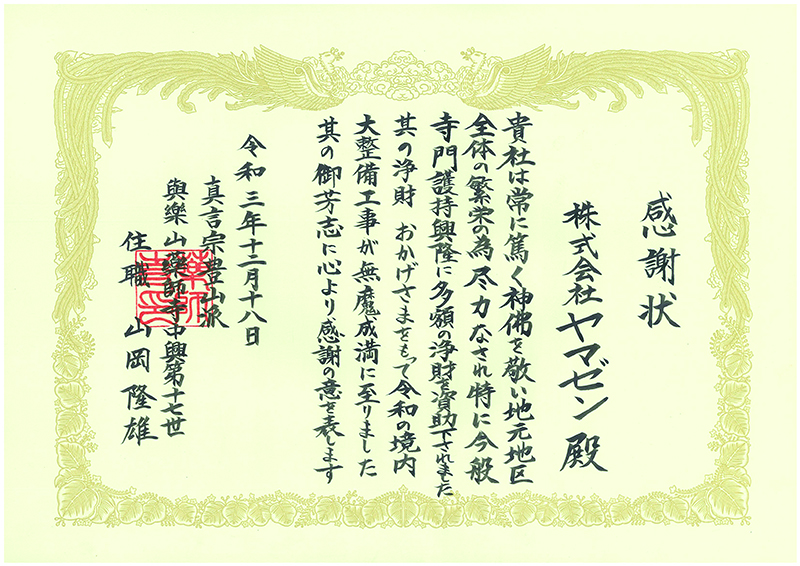 感謝状
株式会社ヤマゼン殿
貴社は常に篤く神佛を敬い地元地区
全体の繁栄の為尽力なされ特に今般
寺門護持興隆に多額の浄財を資助下されました
其の浄財 おかげさまをもって令和の境内
大整備工事が無魔成満に至りました
其の御芳志に心より感謝の意を表します
令和三年十二月十八日
真言宗豊山派
與樂山藥師寺中興第十七世
住職 山岡隆雄